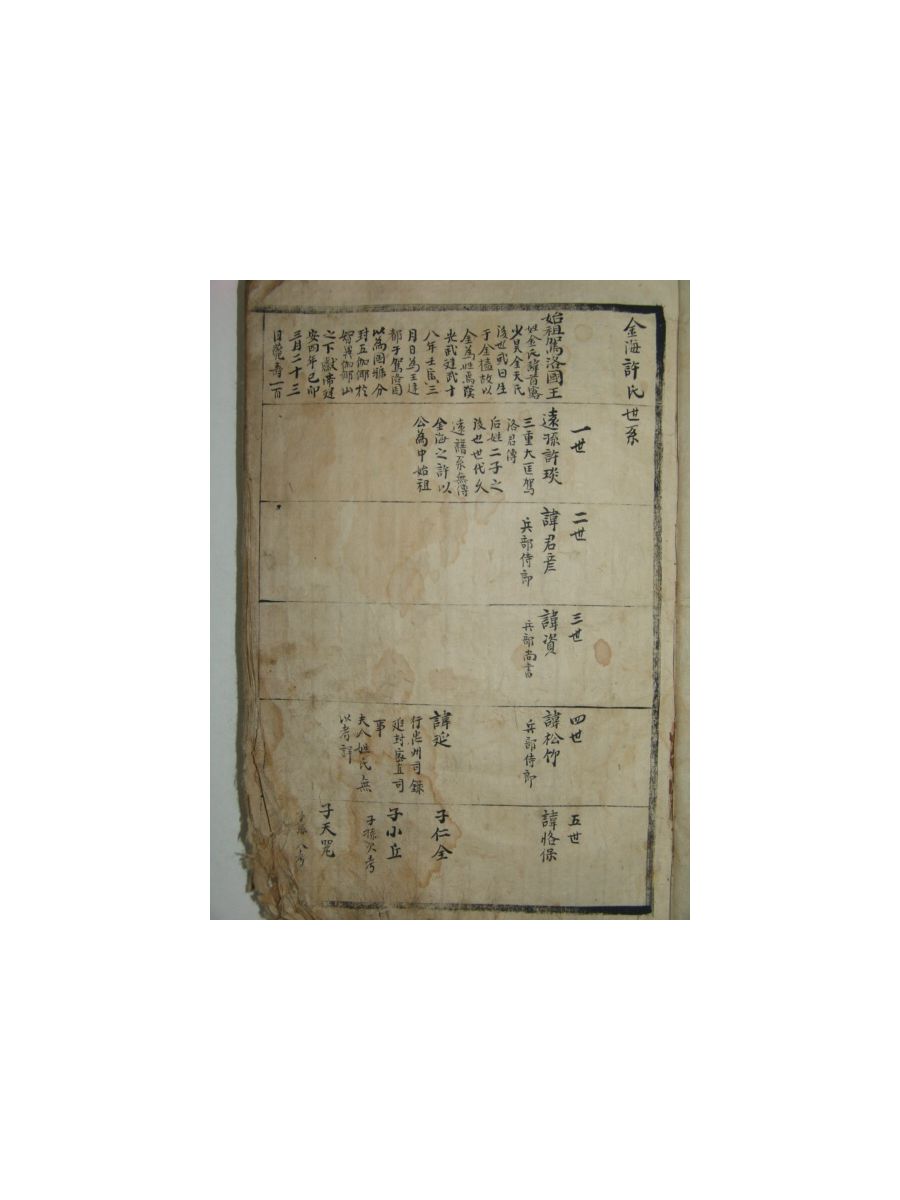 金海許氏世系
始祖駕洛國王
姓金氏諱首露
少昊金天氏
後世或曰生
于金榼故以
金為姓焉漢
光武建武十
八年壬寅三
月日為王建
都于駕洛因
以為國號分
封五伽倻於
智異伽倻山
之下獻帝建
安四年己卯
三月二十三
日薨壽一百
一世
遠孫許琰
三重大匡駕
洛君傳
后姓二子之
後也世代久
遠譜系無傳
金海之許以
公為中始祖
二世
諱君彦
兵部侍郎
三世
諱資
兵部尚書
四世
諱松竹
兵部侍郎
諱延
行忠州司錄
追封密直司
事
夫人姓氏無
以考詳
五世
諱恪保
子仁全
子小丘
子孫欠考
子天